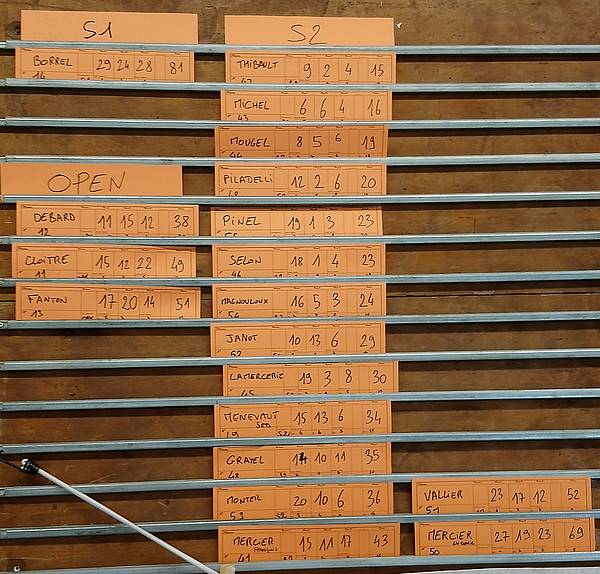 S1
BORREL 29 24 28 81
14
OPEN
DEBARD 11 15 12 38
12
CLOITRE 15 12 22 49
11
FANTON 17 20 14 51
13
S2
THIBAULT 9 2 4 15
47
MICHEL 6 6 4 16
43
MOUGEL 8 5 6 19
44
PILADELLI 12 2 6 20
PINEL 19 1 3 23
SELON 18 1 4 23
46
MAGNOULOUX 16 5 3 24
54
JANOT 10 13 6 29
52
LAMERCERIE 19 3 8 30
45
MENEVAUT 15 13 6 34
GRAYEL 14 10 11 35
48
MONTEIL 20 10 6 36
53
MERCIER 15 11 17 43
41
VALLIER 23 17 12 52
51
MERCIER 27 19 23 69
50